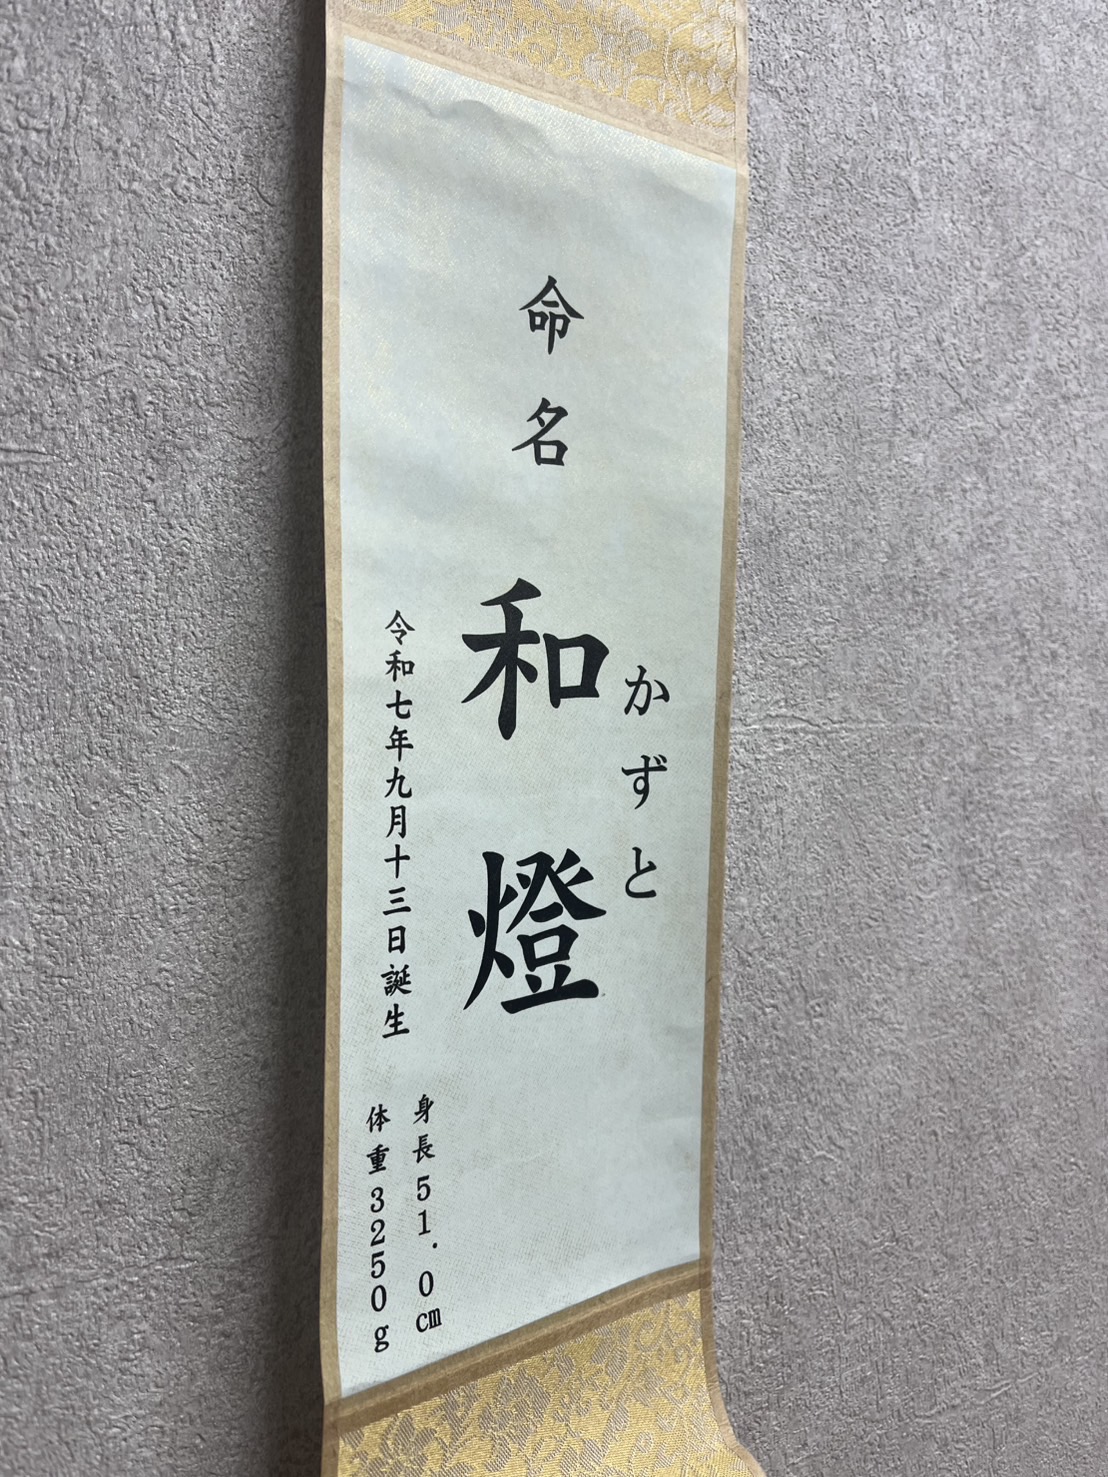 かずと
命名
和燈
令和七年九月十三日誕生
身長51.0㎝
体重3250g